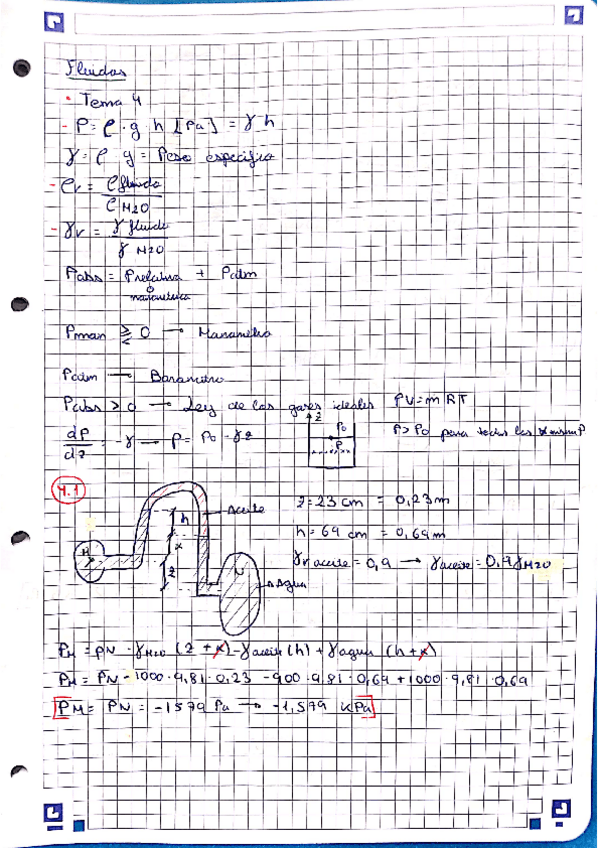 Fluidos
• Tema 4
- P = ρ · g h [Pa] = γ h
γ = ρ g = Peso específico
- ρr = ρ fluido / ρ H2O
- γr = γ fluido / γ H2O
Pabs = Prelativa + Patm
manométrica
Pman ⋛ 0 → Manómetro
Patm → Barómetro
Pabs > 0 → Ley de los gases ideales PV = mRT
dP/dz = -γ → P = P0 - γz
z
P0
P
P > P0 para todos los
4.1
Aceite
h
x
z
M
N
Agua
z = 23 cm = 0,23 m
h = 69 cm = 0,69 m
γr aceite = 0,9 → γaceite = 0,9 γH2O
PM = PN - γH2O (z + x) - γaceite (h) + γagua (h + x)
PM = PN - 1000 · 9,81 · 0,23 - 900 · 9,81 · 0,69 + 1000 · 9,81 · 0,69
PM = PN = -1579 Pa → -1,579 KPa